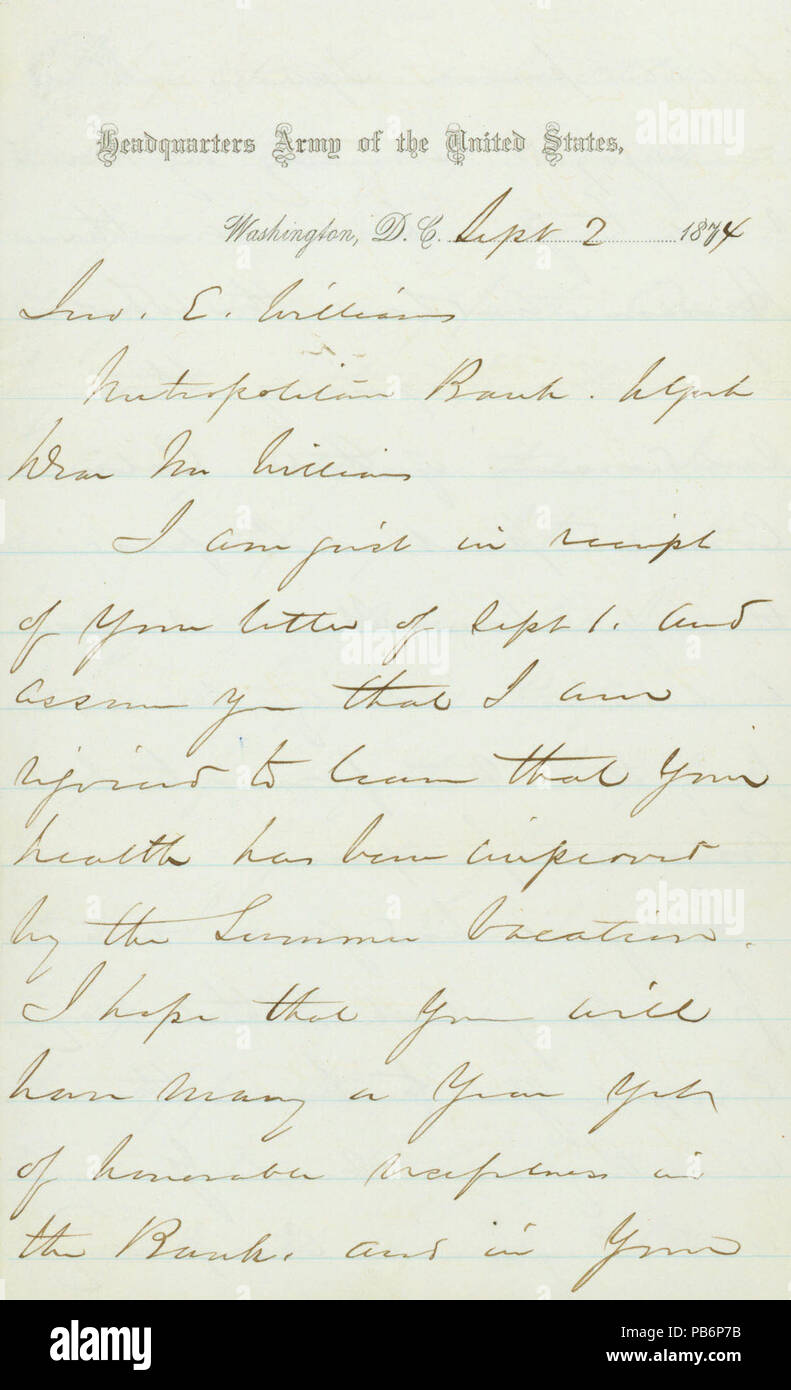 Headquarters Army of the United States,
Washington, D. C. Sept 2 1874
Jno. E. Williams
Metropolitan Bank. N York
Dear Mr Williams
I am just in receipt
of your letter of Sept 1. and
assure you that I am
rejoiced to learn that your
health has been improved
by the Summer Vacation.
I hope that you will
have many a year yet
of honorable usefulness in
the Bank. and in your
alamy
alamy
alamy
alamy
Image ID: PB6P7B
www.alamy.com